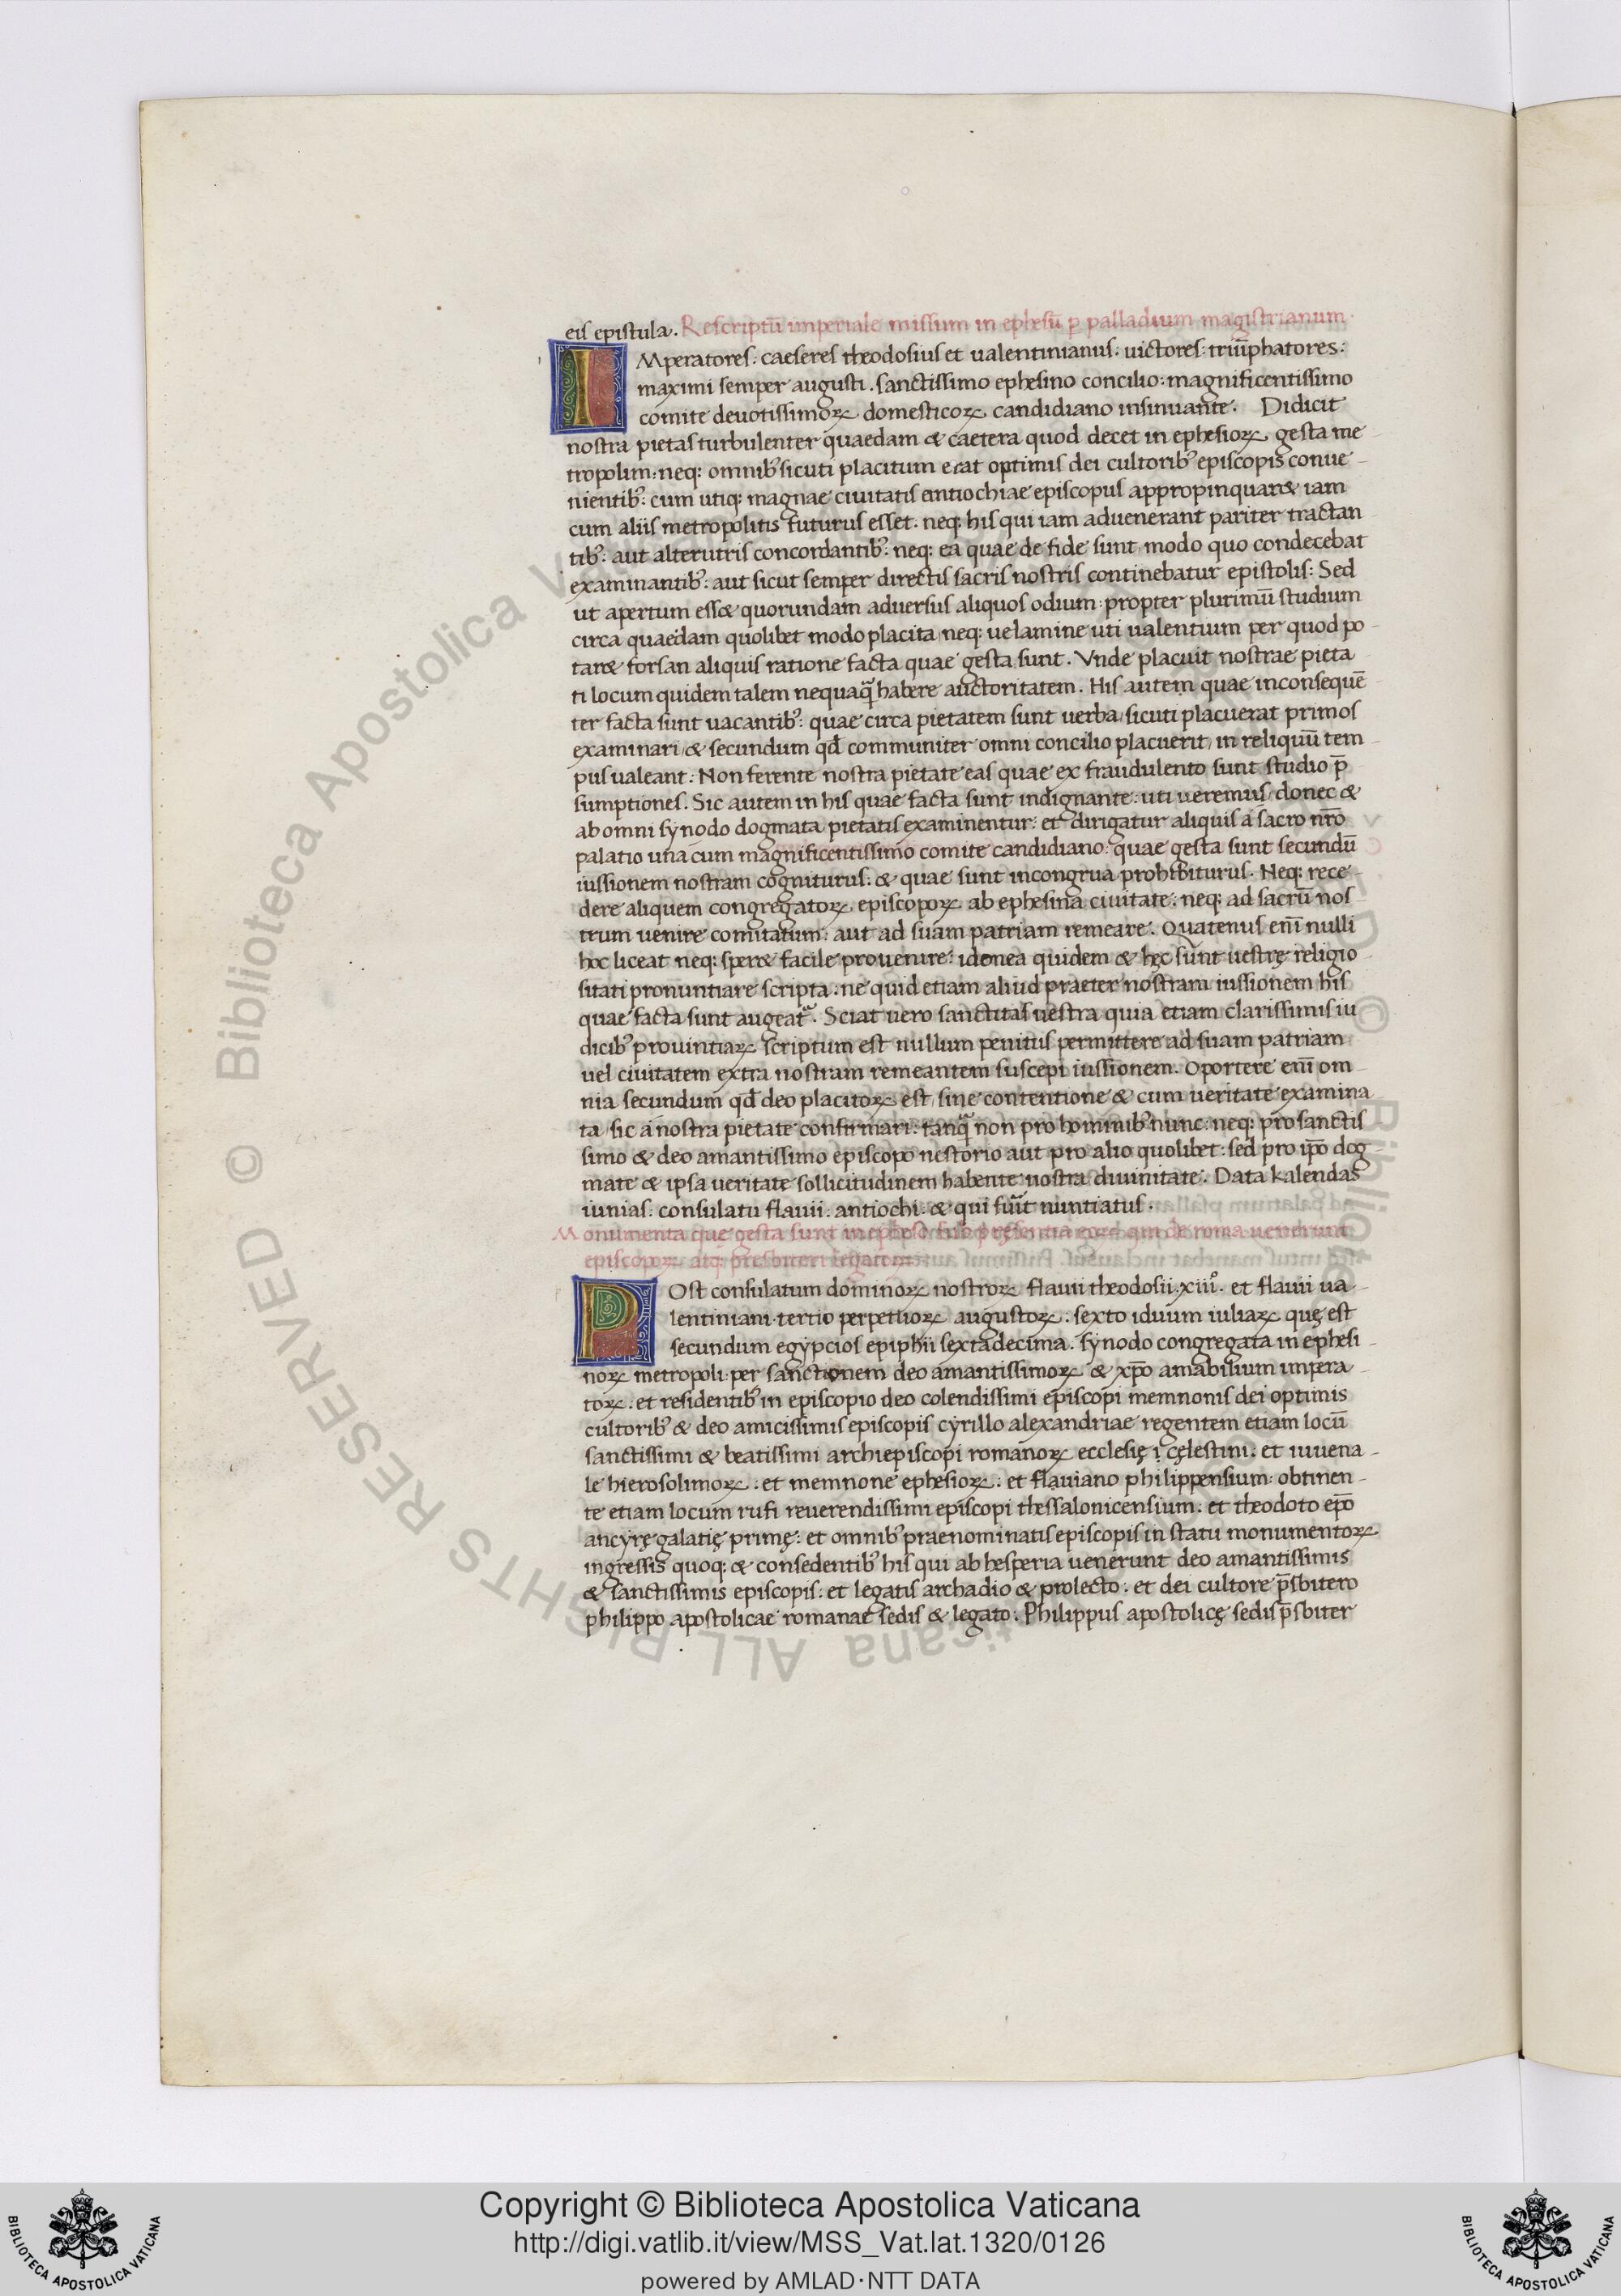 eis epistula. Rescriptū imperiale missum in ephesū p palladium magistrianum.
IMperatores: caeseres theodosius et ualentinianus: uictores: triūphatores:
maximi semper augusti. sanctissimo ephesino concilio: magnificentissimo
comite deuotissimoꝝ domesticoꝝ candidiano insinuante. Didicit
nostra pietas turbulenter quaedam & caetera quod decet in ephesioꝝ gesta me-
tropolim: neq; omnib; sicuti placitum erat optimis dei cultorib; episcopis conue-
nientib;: cum utiq; magnae ciuitatis antiochiae episcopus appropinquar& iam
cum aliis metropolitis futurus esset. neq; his qui iam aduenerant pariter tractan-
tib;: aut alterutris concordantib;: neq; ea quae de fide sunt modo quo condecebat
examinantib;: aut sicut semper directis sacris nostris continebatur epistolis: Sed
ut apertum ess& quorundam aduersus aliquos odium: propter plurimū studium
circa quaedam quolibet modo placita neq; uelamine uti ualentium per quod po-
tar& forsan aliquis ratione facta quae gesta sunt. Vnde placuit nostrae pieta-
ti locum quidem talem nequaq̄ habere auctoritatem. His autem quae inconsequē-
ter facta sunt uacantib;: quae circa pietatem sunt uerba sicuti placuerat primos
examinari & secundum qđ communiter omni concilio placuerit, in reliquū tem-
pus ualeant: Non ferente nostra pietate eas quae ex fraudulento sunt studio p̄-
sumptiones. Sic autem in his quae facta sunt indignante: uti ueremus donec &
ab omni synodo dogmata pietatis examinentur: et dirigatur aliquis a sacro nr̄o
palatio una cum magnificentissimo comite candidiano: quae gesta sunt secundū
iussionem nostram cogniturus: & quae sunt incongrua prohibiturus. Neq; rece-
dere aliquem congregatoꝝ episcopoꝝ ab ephesina ciuitate: neq; ad sacrū nos-
trum uenire comitatum: aut ad suam patriam remeare. Quatenus enī nulli
hoc liceat neq; sper& facile prouenire: idonea quidem & hęc sunt uestrę religio-
sitati pronuntiare scripta: ne quid etiam aliud praeter nostram iussionem his
quae facta sunt augeat᷑. Sciat uero sanctitas uestra quia etiam clarissimis iu-
dicib; prouintiaꝝ scriptum est nullum penitus permittere ad suam patriam
uel ciuitatem extra nostram remeantem suscepi iussionem. Oportere enī om-
nia secundum qđ deo placitoꝝ est sine contentione & cum ueritate examina-
ta sic a nostra pietate confirmari: tanq̄ non pro hominib; nunc: neq; pro sanctis-
simo & deo amantissimo episcopo nestorio aut pro alio quolibet: sed pro ip̄o dog-
mate & ipsa ueritate sollicitudinem habente nostra diuinitate. Data kalendas
iunias. consulatu flauii. antiochi. & qui fuīt nuntiatus.
Monumenta que gesta sunt in epheso sub pręsentia eoꝝ qui de roma uenerunt
episcopoꝝ atq; presbiteri legatoꝝ
POst consulatum dominoꝝ nostroꝝ flauii theodosii. xiiiº. et flauii ua-
lentiniani. tertio perpetuoꝝ augustoꝝ: sexto iduum iuliaꝝ quę est
secundum egypcios epiphii sextadecima. synodo congregata in ephesi-
noꝝ metropoli per sanctionem deo amantissimoꝝ & xp̄o amabilium impera-
toꝝ. et residentib; in episcopio deo colendissimi episcopi memnonis dei optimis
cultorib; & deo amicissimis episcopis cyrillo alexandriae regentem etiam locū
sanctissimi & beatissimi archiepiscopi romanoꝝ ecclesię cęlestini: et iuuena-
le hierosolimoꝝ: et memnone ephesioꝝ: et flauiano philippensium: obtinen-
te etiam locum rufi reuerendissimi episcopi thessalonicensium: et theodoto ep̄o
ancyrę galatię primę: et omnib; praenominatis episcopis in statu monumentoꝝ
ingressis quoq; & consedentib; his qui ab hesperia uenerunt deo amantissimis
& sanctissimis episcopis: et legatis archadio & prolecto: et dei cultore p̄sbitero
philippo apostolicae romanae sedis & legato: Philippus apostolicę sedis p̄sbiter
© Biblioteca Apostolica Vaticana ALL RIGHTS RESERVED
Copyright © Biblioteca Apostolica Vaticana
http://digi.vatlib.it/view/MSS_Vat.lat.1320/0126
powered by AMLAD·NTT DATA
BIBLIOTECA APOSTOLICA VATICANA
BIBLIOTECA APOSTOLICA VATICANA